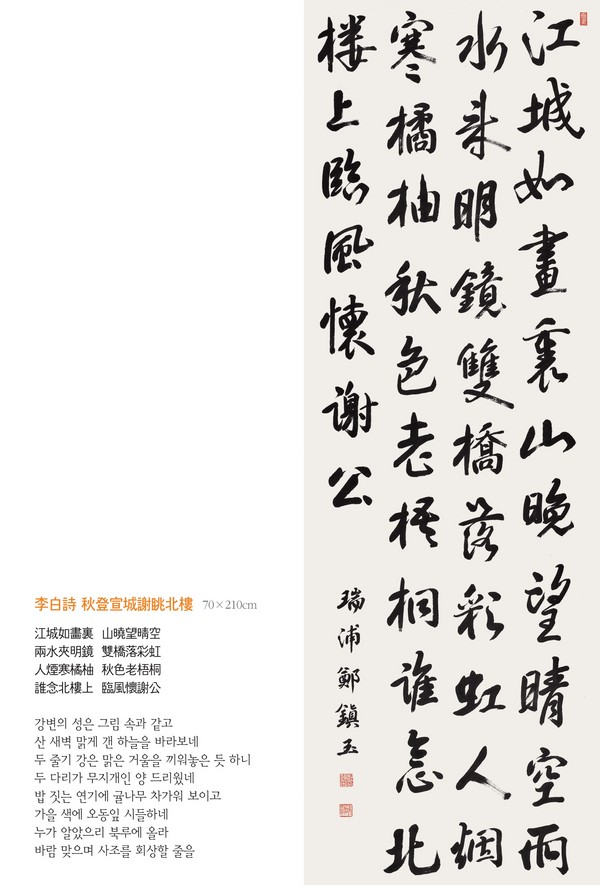 江城如畫裏山晚望晴空兩
水夾明鏡雙橋落彩虹人烟
寒橘柚秋色老梧桐誰念北
樓上臨風懷謝公
瑞浦鄭鎭玉
李白詩 秋登宣城謝眺北樓 70×210cm
江城如畫裏 山曉望晴空
兩水夾明鏡 雙橋落彩虹
人煙寒橘柚 秋色老梧桐
誰念北樓上 臨風懷謝公
강변의 성은 그림 속과 같고
산 새벽 맑게 갠 하늘을 바라보네
두 줄기 강은 맑은 거울을 끼워놓은 듯 하니
두 다리가 무지개인 양 드리웠네
밥 짓는 연기에 귤나무 차가워 보이고
가을 색에 오동잎 시들하네
누가 알았으리 북루에 올라
바람 맞으며 사조를 회상할 줄을